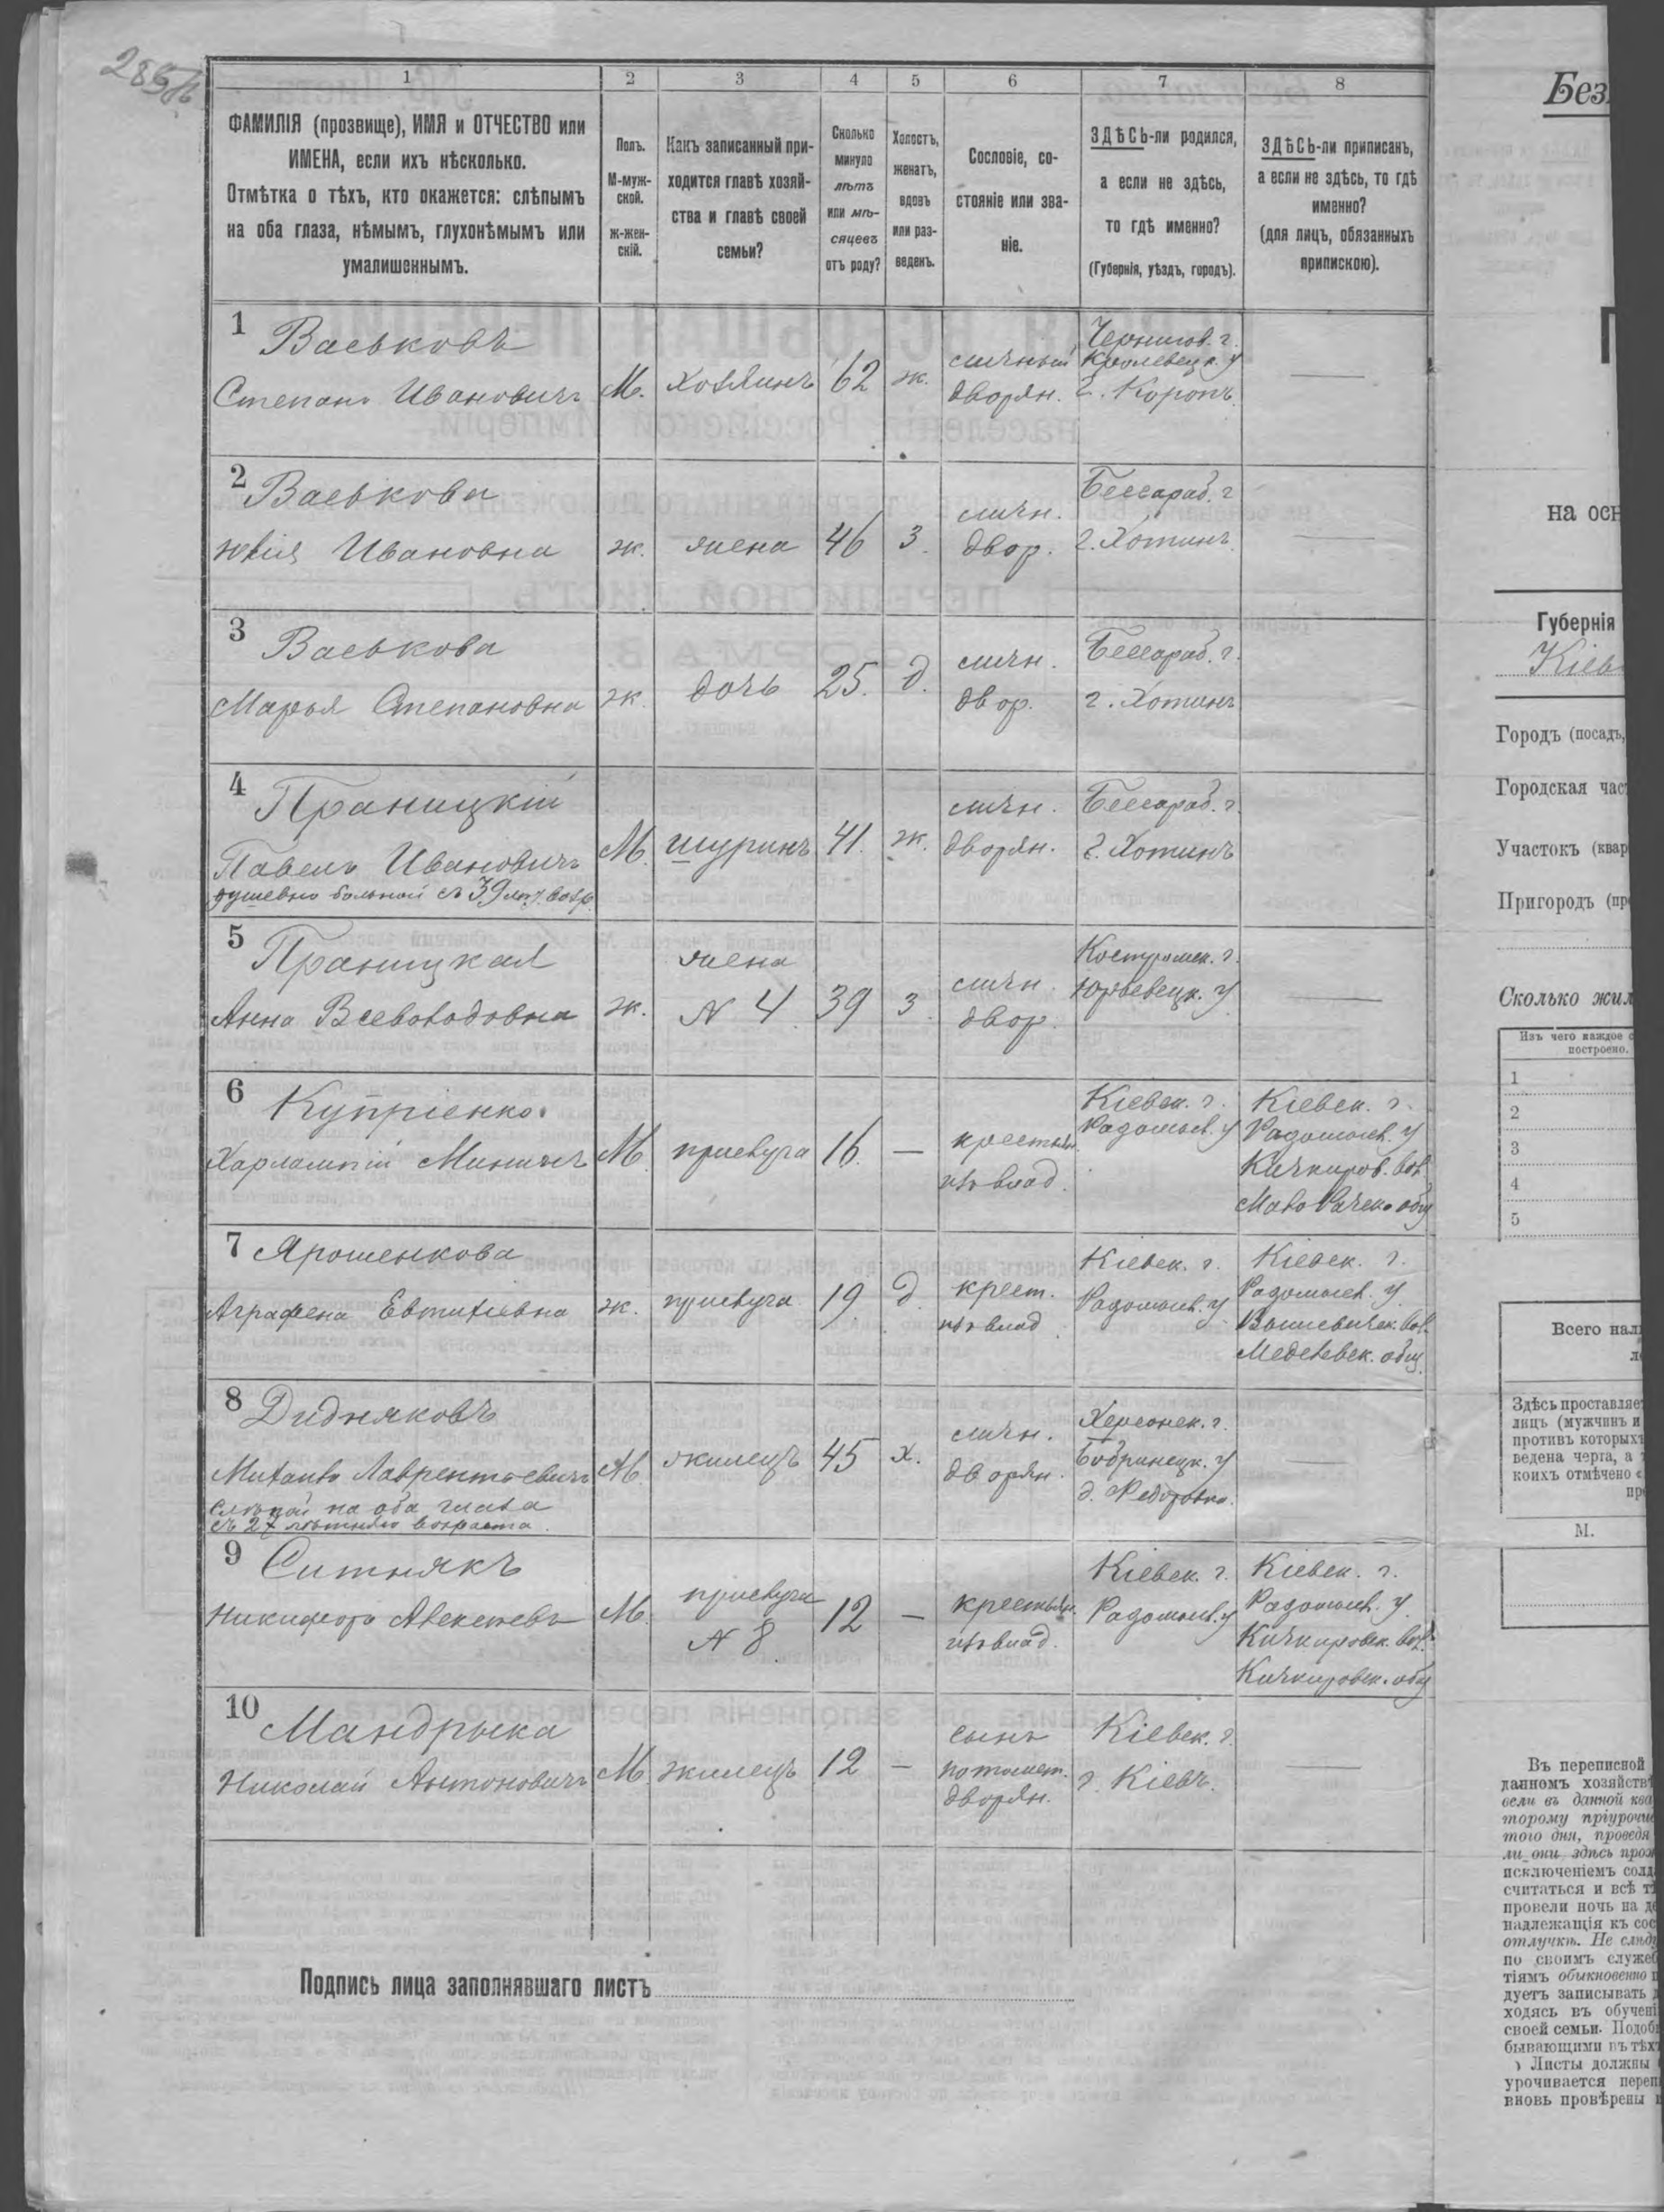 1 2 3 4 5 6 7 8
ФАМИЛІЯ (прозвище), ИМЯ и ОТЧЕСТВО или
ИМЕНА, если ихъ нѣсколько.
Отмѣтка о тѣхъ, кто окажется: слѣпымъ
на оба глаза, нѣмымъ, глухонѣмымъ или
умалишеннымъ.
Полъ.
М-муж-
ской.
ж-жен-
скій.
Какъ записанный при-
ходится главѣ хозяй-
ства и главѣ своей
семьи?
Сколько
минуло
лѣтъ
или мѣ-
сяцевъ
отъ роду?
Холостъ,
женатъ,
вдовъ
или раз-
веденъ.
Сословіе, со-
стояніе или зва-
ніе.
ЗДѢСЬ-ли родился,
а если не здѣсь,
то гдѣ именно?
(Губернія, уѣздъ, городъ).
ЗДѢСЬ-ли приписанъ,
а если не здѣсь, то гдѣ
именно?
(для лицъ, обязанныхъ
припискою).
1 Васьковъ
Степанъ Ивановичъ
М.
хозяинъ
62
ж.
личный
дворян.
Чернигов. г.
Кролевецк. у
г. Коропъ.
2 Васькова
Юлія Ивановна
ж.
жена
46
з.
личн.
двор.
Бессараб. г
г. Хотинъ.
3 Васькова
Марья Степановна
ж.
дочь
25.
д.
личн.
двор.
Бессараб. г.
г. Хотинъ
4 Праницкій
Павелъ Ивановичъ
душевно больной съ 39 лѣт. возр.
М.
шуринъ
41.
ж.
личн.
дворян.
Бессараб. г.
г. Хотинъ
5 Праницкая
Анна Всеволодовна
ж.
жена
N 4
39
з.
личн.
двор.
Костромск. г.
Юрьевецк. у
6 Купріенко
Харлампій Мининъ
М.
прислуга
16.
—
крестьян.
изъ влад.
Кіевск. г.
Радомысл. у
Кіевск. г.
Радомысл. у
Кичкиров. вол.
7 Ярошенкова
Аграфена Евтихіевна
ж.
прислуга
19.
д.
крест.
изъ влад.
Кіевск. г.
Радомысл. у
Кіевск. г.
Радомысл. у.
Вышевическ. вол.
Меделевск. общ.
8 Дидняковъ
Михаилъ Лаврентьевичъ
Слѣпой на оба глаза
съ 27 лѣтняго возраста.
М.
жилецъ
45
х.
личн.
дворян.
Херсонск. г.
Бобринецк. у
д. Федоровка.
9 Ситнякъ
Никифоръ Алексѣевъ
М.
прислуга
N 8
12
—
крестьян.
изъ влад.
Кіевск. г.
Радомысл. у
Кіевск. г.
Радомысл. у.
Кичкировск. вол.
Кичкировск. общ
10 Мандрыка
Николай Антоновичъ
М.
жилецъ
12
—
сынъ
потомст.
дворян.
Кіевск. г.
г. Кіевъ.
Подпись лица заполнявшаго листъ
Без
на осн
Губернія
Кіев
Городъ (посадъ,
Городская час
Участокъ (квар
Пригородъ (пр
Сколько жил
Изъ чего каждое с
построено.
1
2
3
4
5
Всего нал
Здѣсь проставляе
лицъ (мужчинъ и
противъ которыхъ
ведена черта, а
коихъ отмѣчено
пр
М.
Въ переписной
данномъ хозяйств
вели въ данной ква
торому пріуроче
того дня, проведя
ли они здѣсь прож
исключеніемъ солд
считаться и всѣ т
провели ночь на д
надлежащія къ сос
отлучкѣ. Не слѣд
по своимъ служеб
тіямъ обыкновенно
дуетъ записывать
ходясь въ обучені
своей семьи. Подоб
бывающими въ тѣх
Листы должны
урочивается переп
вновь провѣрены